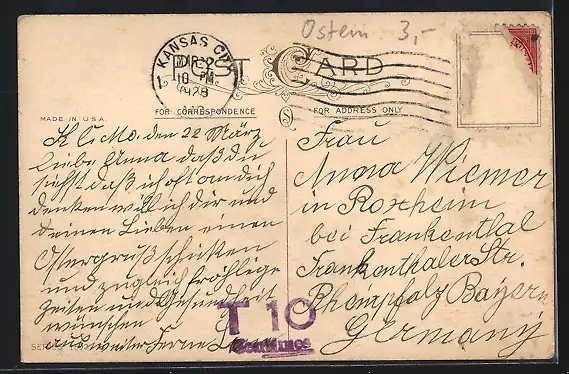 Ostern 3,-
KANSAS CITY
MAR 2
10 PM
1928
POST CARD
FOR CORRESPONDENCE
FOR ADDRESS ONLY
MADE IN U.S.A.
K C. Mo. den 22 März
Liebe Anna daß du
siehst daß ich oft an dich
denken will ich dir und
deinen Lieben einen
Ostergruß schicken
und zugleich fröhlige
Zeiten und Gesundheit
wünschen
aus weiter Ferne
Frau
Anna Wiemer
in Roxheim
bei Frankenthal
Frankenthaler Str.
Rheinpfalz Bayern
Germany
T 10
CENTIMES